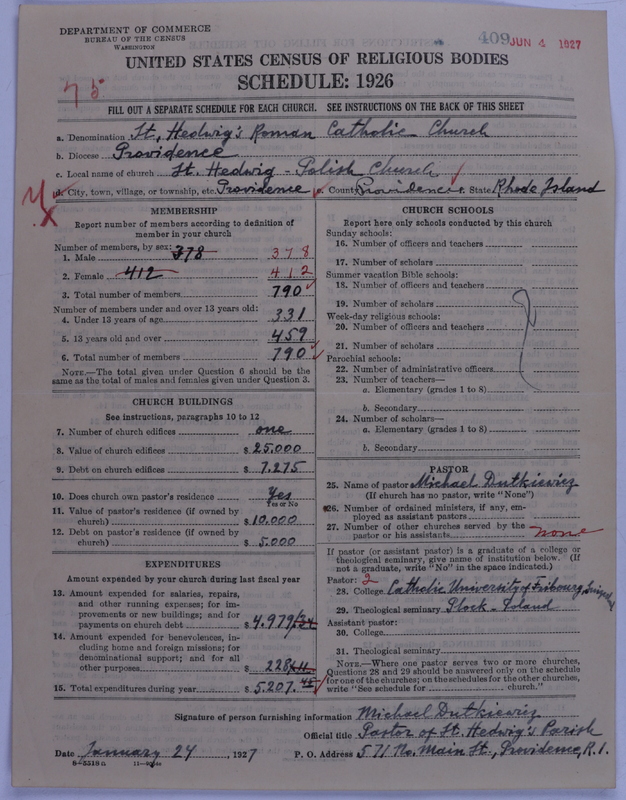 DEPARTMENT OF COMMERCE
BUREAU OF THE CENSUS
WASHINGTON
409 JUN 4 1927
UNITED STATES CENSUS OF RELIGIOUS BODIES
SCHEDULE: 1926
75
FILL OUT A SEPARATE SCHEDULE FOR EACH CHURCH. SEE INSTRUCTIONS ON THE BACK OF THIS SHEET
a. Denomination St. Hedwig's Roman Catholic Church
b. Diocese Providence
c. Local name of church St. Hedwig - Polish Church
d. City, town, village, or township, etc. Providence e. County Providence f. State Rhode Island
MEMBERSHIP
Report number of members according to definition of
member in your church
Number of members, by sex:
1. Male 378 378
2. Female 412 412
3. Total number of members 790
Number of members under and over 13 years old:
4. Under 13 years of age 331
5. 13 years old and over 459
6. Total number of members 790
NOTE.—The total given under Question 6 should be
same as the total of males and females given under Question 3.
CHURCH BUILDINGS
See instructions, paragraphs 10 to 12
7. Number of church edifices one
8. Value of church edifices $ 25.000
9. Debt on church edifices $ 7.275
10. Does church own pastor's residence Yes
Yes or No
11. Value of pastor's residence (if owned by
church) $ 10.000
12. Debt on pastor's residence (if owned by
church) $ 5.000
EXPENDITURES
Amount expended by your church during last fiscal year
13. Amount expended for salaries, repairs,
and other running expenses; for im-
provements or new buildings; and for
payments on church debt $ 4.979
14. Amount expended for benevolences, in-
cluding home and foreign missions; for
denominational support; and for all
other purposes $ 228
15. Total expenditures during year $ 5.207.45
CHURCH SCHOOLS
Report here only schools conducted by this church
Sunday schools:
16. Number of officers and teachers
17. Number of scholars
Summer vacation Bible schools:
18. Number of officers and teachers
19. Number of scholars
Week-day religious schools:
20. Number of officers and teachers
21. Number of scholars
Parochial schools:
22. Number of administrative officers
23. Number of teachers—
a. Elementary (grades 1 to 8)
b. Secondary
24. Number of scholars—
a. Elementary (grades 1 to 8)
b. Secondary
PASTOR
25. Name of pastor Michael Dutkiewicz
(If church has no pastor, write "None")
26. Number of ordained ministers, if any, em-
ployed as assistant pastors
27. Number of other churches served by the
pastor or his assistants none
If pastor (or assistant pastor) is a graduate of a college or
theological seminary, give name of institution below. (If
not a graduate, write "No" in the space indicated.)
Pastor: 2
28. College Catholic University of Fribourg,
29. Theological seminary Plock - Poland
Assistant pastor:
30. College
31. Theological seminary
NOTE.—Where one pastor serves two or more churches,
Questions 28 and 29 should be answered only on the schedule
for one of the churches; on the schedules for the other churches,
write "See schedule for church."
Signature of person furnishing information Michael Dutkiewicz
Official title Pastor of St. Hedwig's Parish
Date January 24, 1927 P. O. Address 571 No. Main St., Providence, R. I.
8—5518a